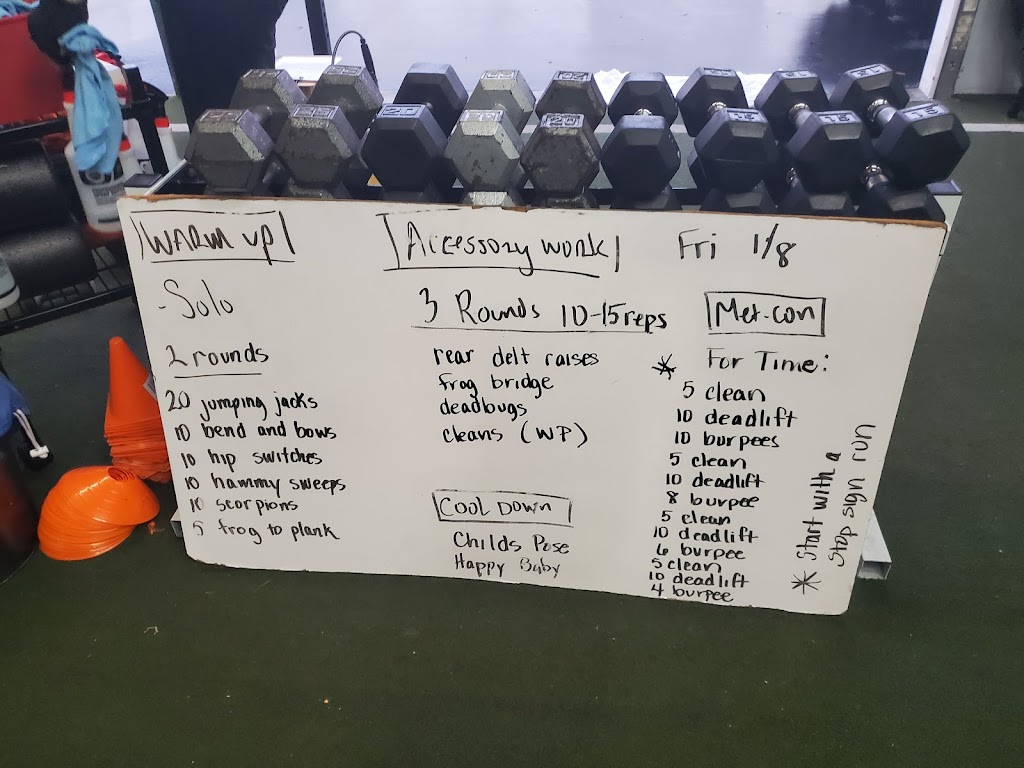 WARM UP
-Solo
2 rounds
20 jumping jacks
10 bend and bows
10 hip switches
10 hammy sweeps
10 scorpions
5 frog to plank
Accessory work
3 Rounds 10-15 reps
rear delt raises
frog bridge
deadbugs
cleans (WP)
COOL DOWN
Childs Pose
Happy Baby
Fri 1/8
Met-con
* For Time:
5 clean
10 deadlift
10 burpees
5 clean
10 deadlift
8 burpee
5 clean
10 deadlift
6 burpee
5 clean
10 deadlift
4 burpee
* Start with a
stop sign run
20
20
15
15
15